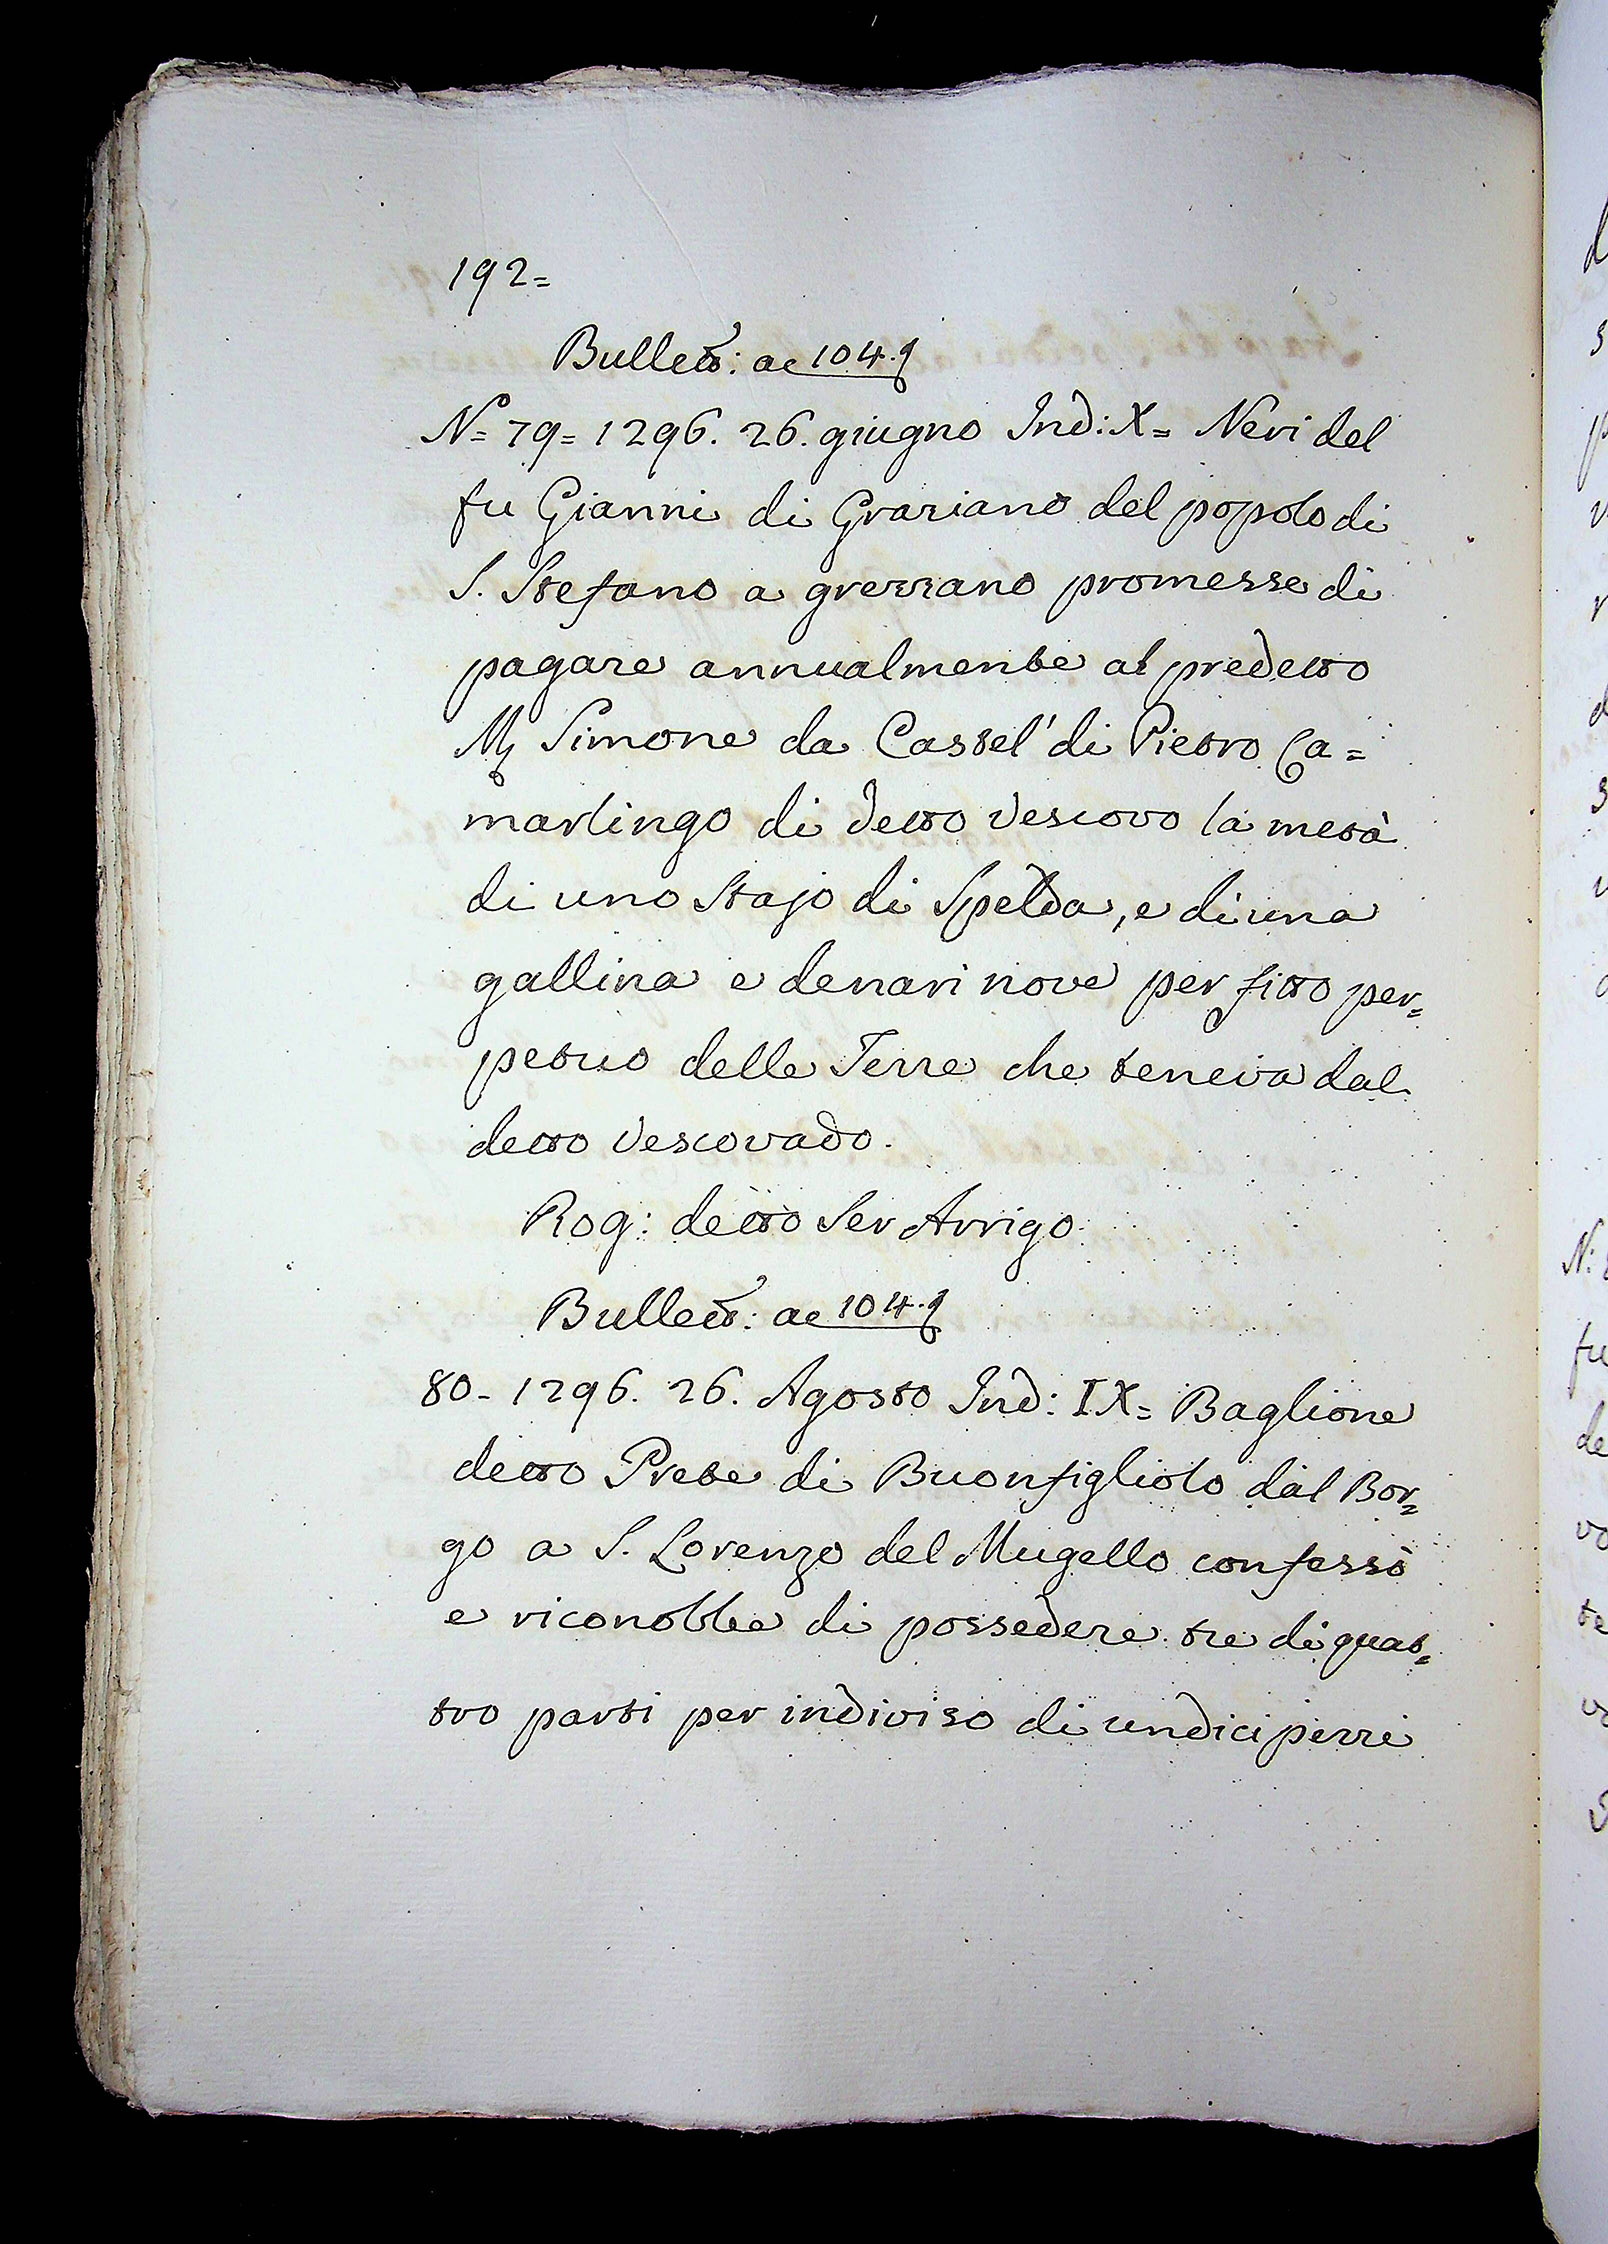 192=
Bullett: ac 104.
N= 79= 1296. 26. giugno Ind: X= Neri del
fu Gianni di Graziano del popolo di
S. Stefano a grezzano promesse di
pagare annualmente al predetto
M Simone da Castel' di Pietro Ca=
marlingo di detto Vescovo la metà
di uno Stajo di Spelda, e di una
gallina e denari nove per fitto per=
petuo delle Terre che teneva dal
detto Vescovado.
Rog: detto Ser Arrigo
Bullett: ac 104.
80- 1296. 26. Agosto Ind: IX= Baglione
detto Prete di Buonfigliolo dal Bor=
go a S. Lorenzo del Mugello confessò
e riconobbe di possedere tre di quat=
tro parti per indiviso di undici pezzi